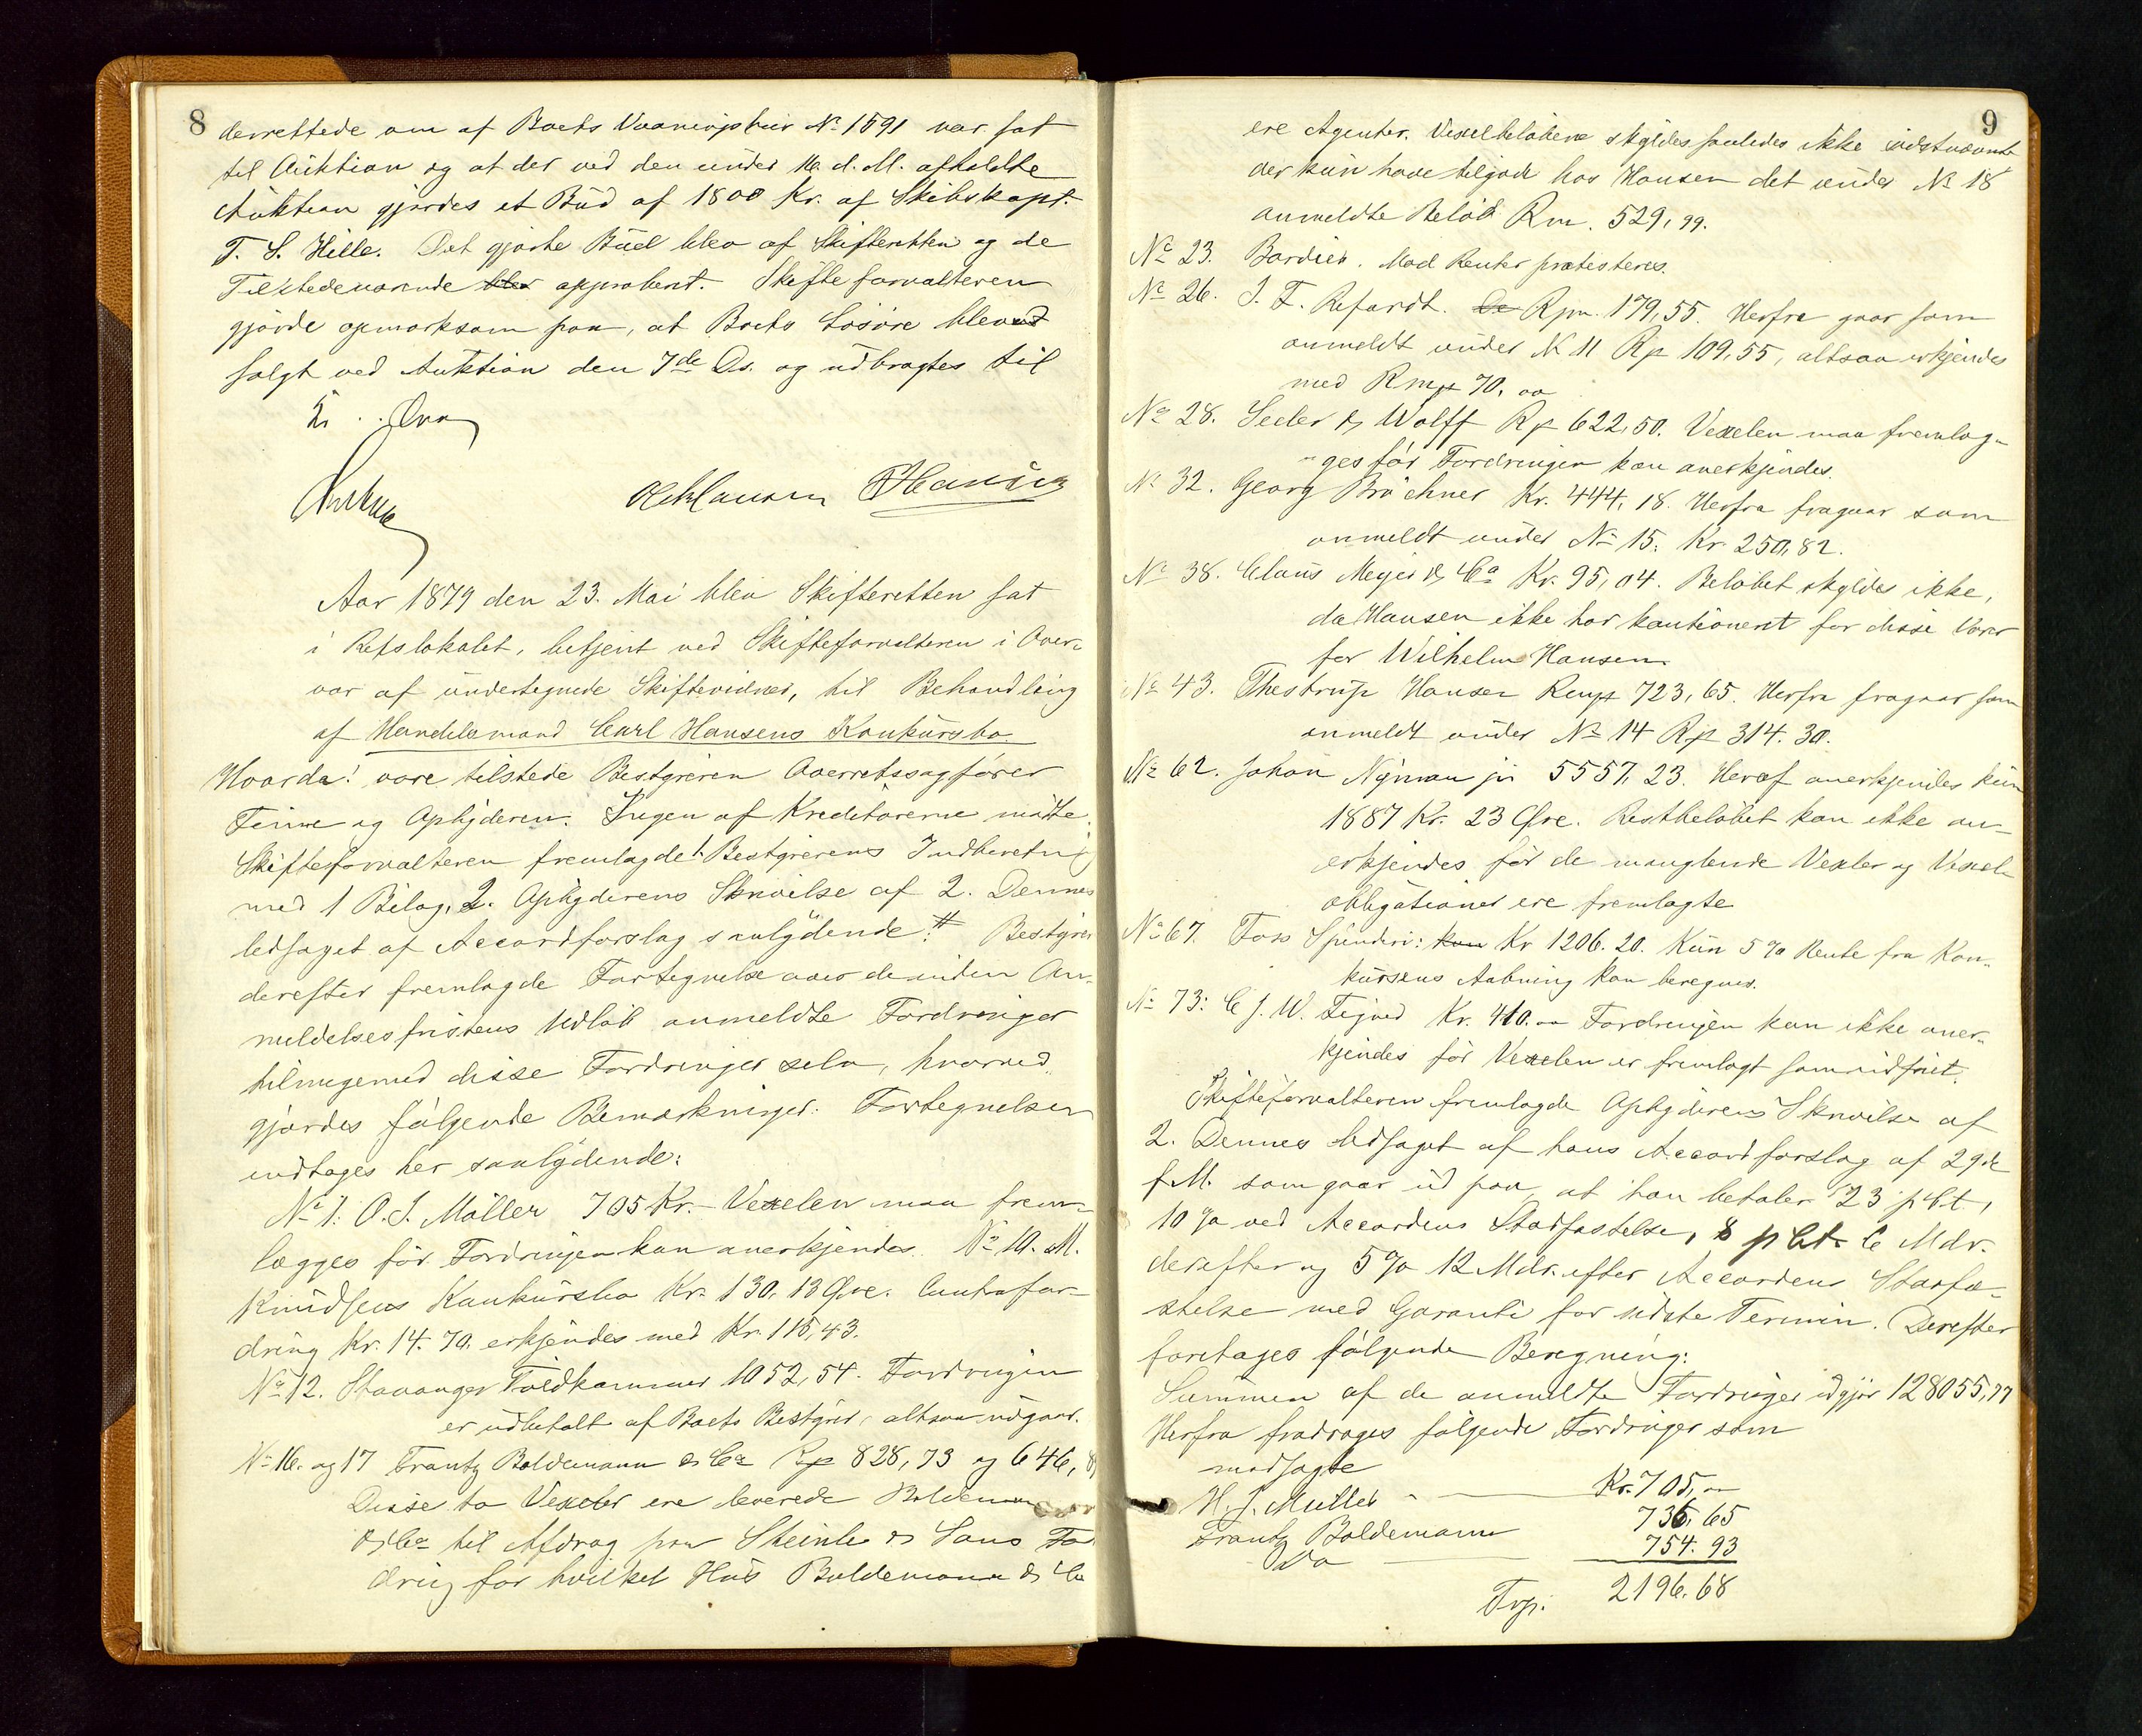 8
derrettede om af Boets Vaaningshus No 1591 var sat
til Auktion og at der ved den under 16. d. M. afholdte
Auktion gjordes et Bud af 1800 Kr. af Skibskapt.
T. S. Hille. Det gjorte Bud blev af Skifteretten og de
Tilstedeværende blev approbert. Skifteforvalteren
gjorde opmærksom paa, at Boets Løsøre blev
solgt ved Auktion den 7de Ds. og udbragtes til
Hansen
Aar 1879 den 23. Mai blev Skifteretten sat
i Retslokalet, betjent ved Skifteforvalteren i Over-
vær af undertegnede Skiftevidner, til Behandling
af Handelsmand Carl Hansens Konkursbo
Hvorda! vare tilstede Bestyreren Overretssagfører
Finne og Opbyderen. Ingen af Kreditorerne mødte.
Skifteforvalteren fremlagde 1. Bestyrerens Indberetning
med 1 Bilag, 2. Opbyderens Skrivelse af 2. Dennes
ledsaget af Accordforslag saalydende: # Bestyrer
derefter fremlagde Fortegnelse over de inden An-
meldelsesfristens Udløb anmeldte Fordringer
tilligemed disse Fordringer selv, hvorved
gjordes følgende Bemærkninger. Fortegnelsen
indtages her saalydende:
No 1: O. J. Møller 705 Kr. - Vexelen maa frem-
lægges før Fordringen kan anerkjendes. No 10. M.
Knudsens Konkursbo Kr. 130, 13 Øre. Contrafor-
dring Kr. 14. 70. erkjendes med Kr. 115, 43.
No 12. Stavanger Toldkammer 1052, 54. Fordringen
er udbetalt af Boets Bestyrer, altsaa udgaar.
No 16. og 17 Frantz Boldemann & Co Rp 828, 73 og 646, 8
Disse to Vexler ere leverede
& Co til Afdrag paa Steinle & Søns For
dring for hvilket Hus Boldemann & Co
9
ere Agenter. Vexelbeløbene skyldes saaledes ikke sidstnævnte
der kun have tilgode hos Hansen det under No 18
anmeldte Beløb Rm. 529, 99.
No 23. Bardien. Mod Renter protesteres.
No 26. J. F. Refardt. Rpm. 179, 55. Herfra gaar som
anmeldt under No 11 Rp 109, 55, altsaa erkjendes
med Rmp 70, 00
No 28. Seeler & Wolff Rp 622, 50. Vexelen maa fremlæg-
ges før Fordringen kan anerkjendes.
No 32. Georg Bröchner Kr. 444, 18. Herfra fragaar som
anmeldt under No 15: Kr. 250, 82.
No 38. Claus Meyer & Co Kr. 95, 04. Beløbet skyldes ikke,
da Hansen ikke har kautioneret for disse Varer
for Wilhelm Hansen.
No 43. Thestrup Hansen Rmp 723, 65. Herfra fragaar som
anmeldt under No 14 Rp 314. 30.
No 62. Johan Nyman jr 5557, 23. Heraf anerkjendes kun
1887 Kr. 23 Øre. Restbeløbet kan ikke an-
erkjendes før de manglende Vexler og Vexel-
obligationer ere fremlagte
No 67. Foss Spinderi: Kr 1206. 20. Kun 5 % Rente fra Kon-
kursens Aabning kan beregnes.
No 73: C J. W. Kr. 410. 00 Fordringen kan ikke aner-
kjendes før Vexelen er fremlagt
Skifteforvalteren fremlagde Opbyderens Skrivelse af
2. Dennes ledsaget af hans Accordforslag af 29de
f. M. som gaar ud paa, at han betaler 23 pCt,
10 % ved Accordens Stadfæstelse, 8 pCt. 6 Mdr.
derefter og 5 % 12 Mdr. efter Accordens Stadfæ-
stelse med Garanti for sidste Termin. Derefter
foretages følgende Beregning:
Summen af de anmeldte Fordringer udgjør 128055, 77
Herfra fradrages følgende Fordringer som
modsagte
H. J. Müller Kr. 705, 00
Frantz Boldemann 736, 65
Do 754. 93
Trsp. 2196. 68